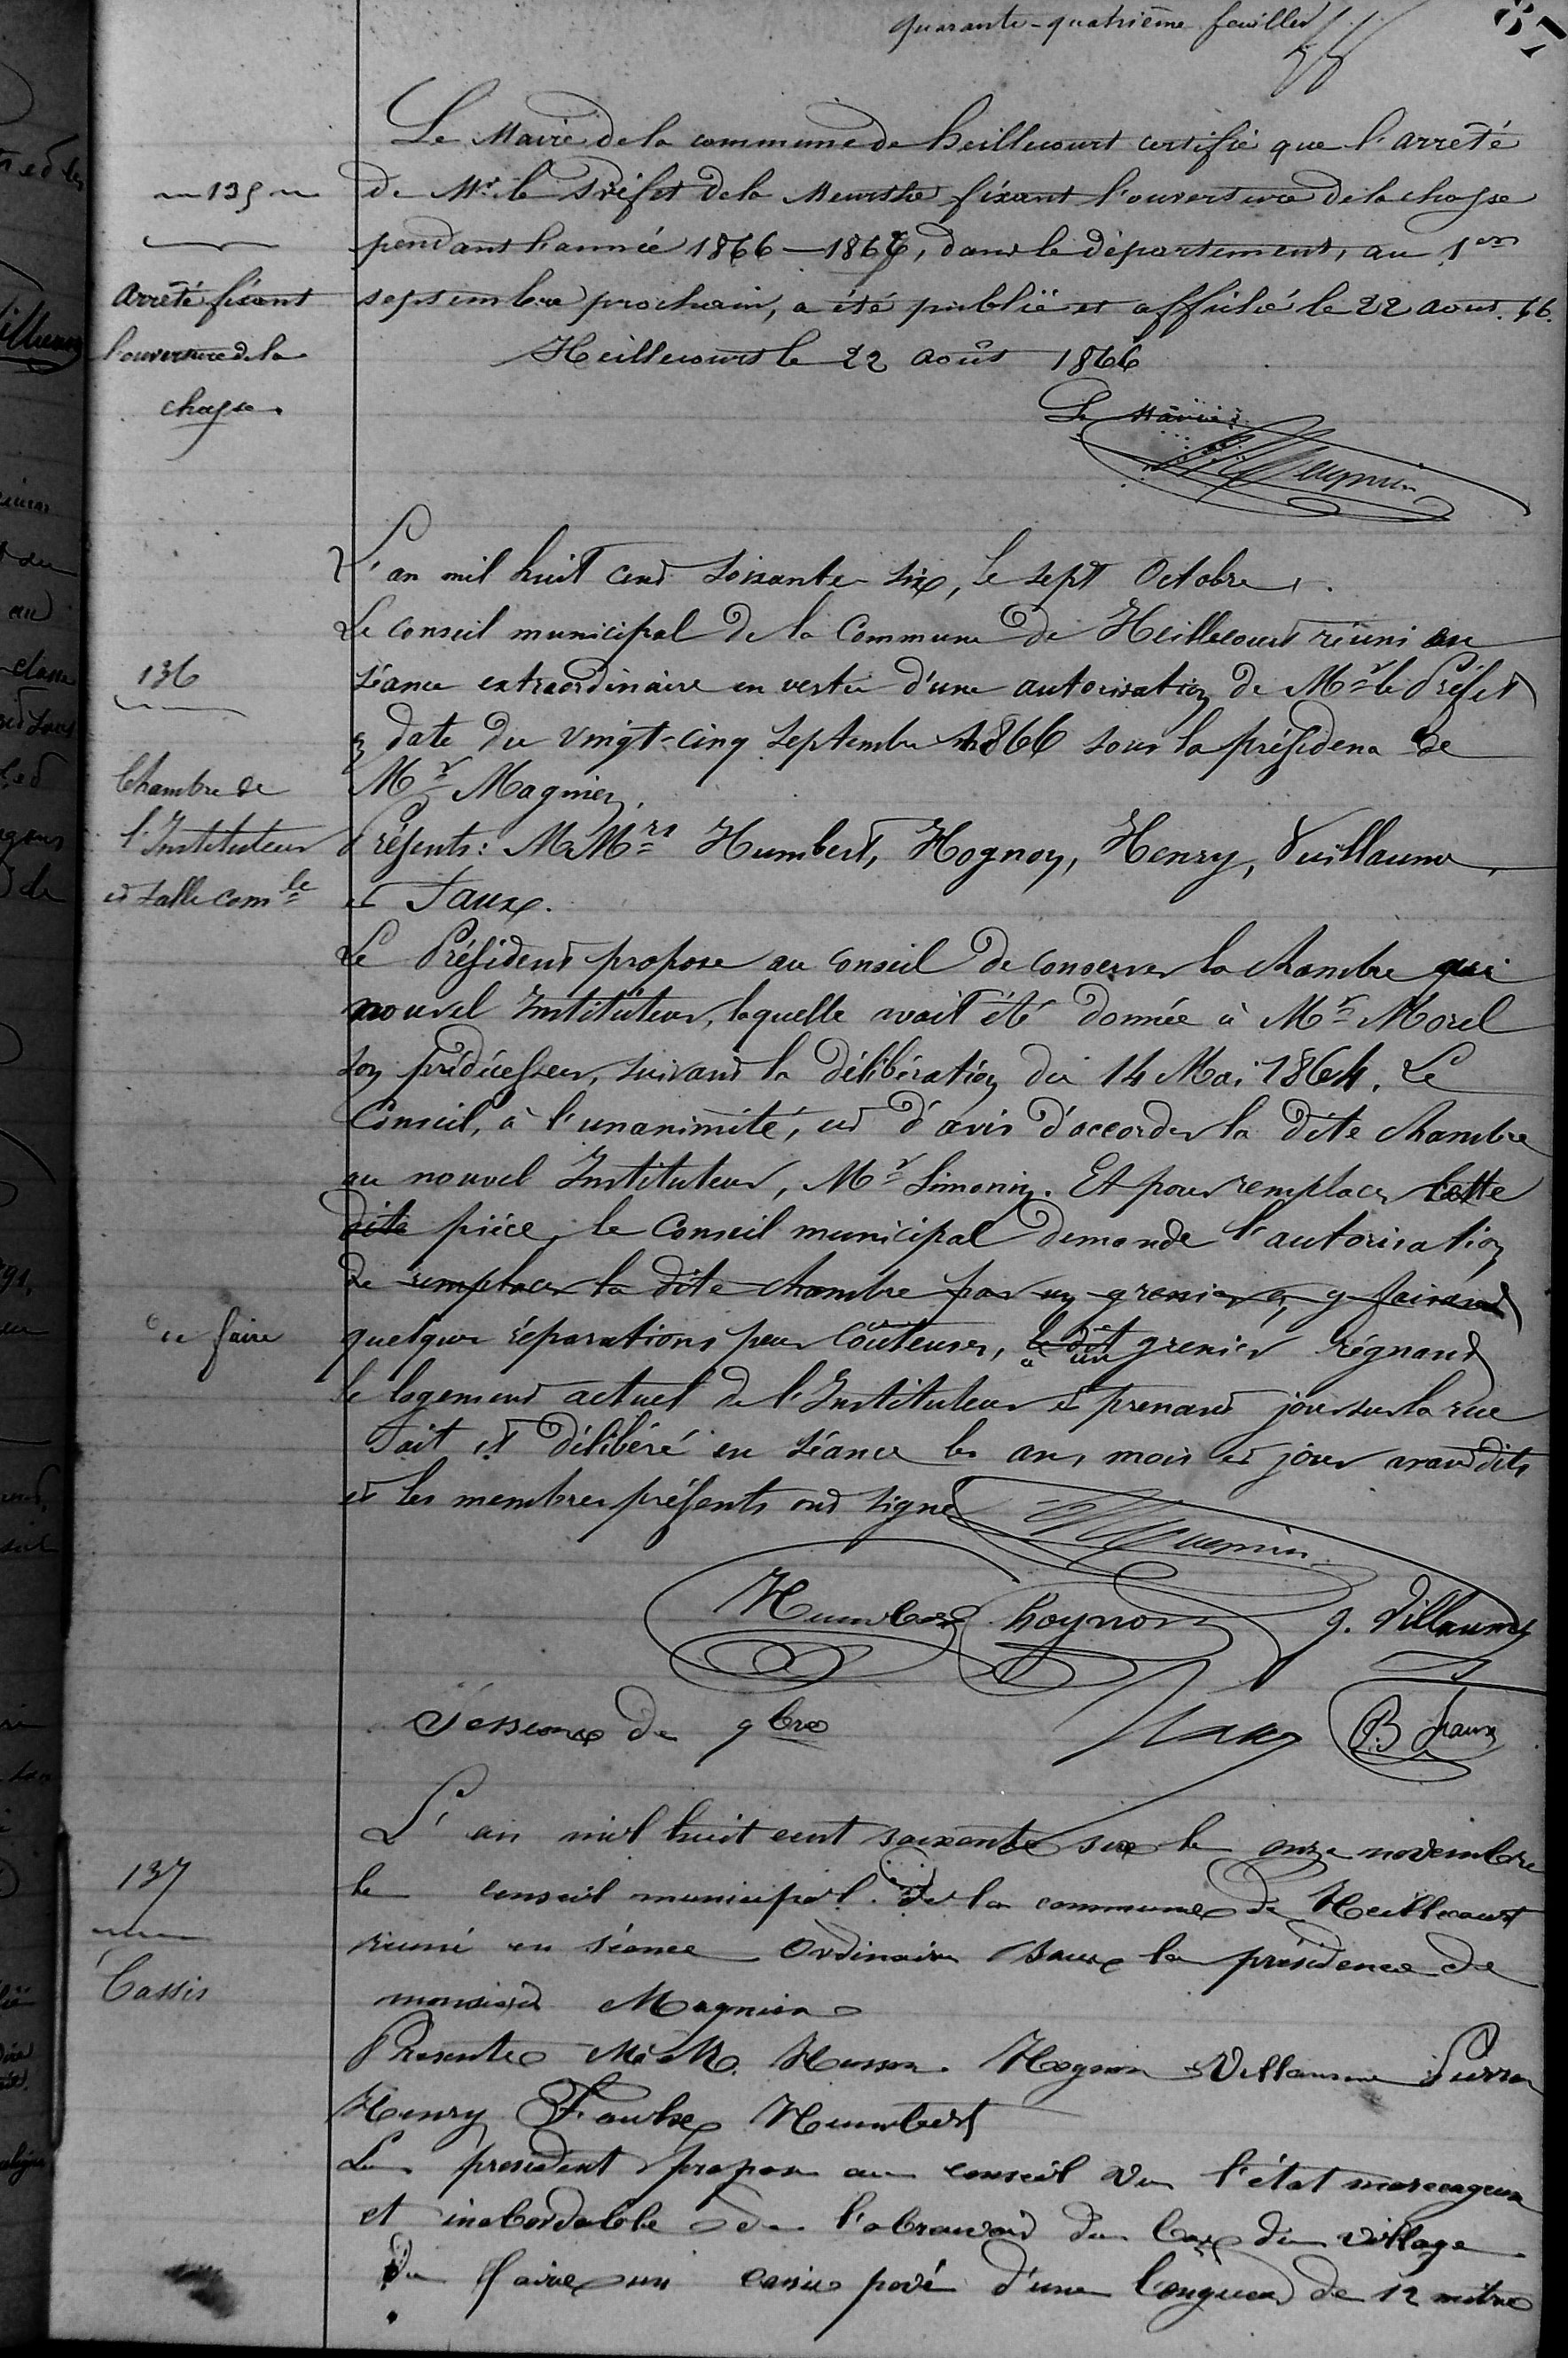 quarante-quatrième feuillet
87
Le Maire de la commune de heillecourt certifie que l'arrêté
~ 135 ~
de Mr. le Préfet de la Meurthe fixant l'ouverture de la chasse
pendant l'année 1866 — 1867, dans le département, au 1er
Arrêté fixant
l'ouverture de la
chasse
septembre prochain, a été publié et affiché le 22 aout. 66.
Heillecourt le 22 août 1866
Le Maire
Magnin
L'an mil huit cent soixante-six, le sept Octobre.
Le conseil municipal de la Commune de Heillecourt réuni en
136
séance extraordinaire en vertu d'une autorisation de Mr le Préfet
en date du vingt-cinq septembre 1866 sous la présidence de
Chambre de
l'Instituteur
et salle comle
Mr Magnien.
Présents: MMrs Humbert, Hognon, Henry, Vuillaume,
et Faux.
Le Président propose au conseil de conserver la chambre au
nouvel Instituteur, laquelle avait été donnée à Mr Morel
son prédécesseur, suivant la délibération du 14 Mai 1864. Le
Conseil, à l'unanimité, est d'avis d'accorder la dite chambre
au nouvel Instituteur, Mr Simonin. Et pour remplacer cette
dite pièce, le Conseil municipal demande l'autorisation
de remplacer la dite chambre par un grenier en y faisant
de faire
quelques réparations peu coûteuses, le dit à un grenier régnant
le logement actuel de l'Instituteur et prenant jour sur la rue
Fait et délibéré en séance les an, mois et jour avant dits
et les membres présents ont signé
Magnin
Humbert hognon g. Villaume
Session de 9bre
B faux
L'an mil huit cent soixante six le onze novembre
137
le conseil municipal de la commune de Heillecourt
réuni en séance Ordinaire sous la présidence de
Cassis
monsieur Magnien
Présents M.M. Husson Hognon Villaume Pierron
Henry Faulx Humbert
Le president propose au conseil vu l'état marecageux
et inabordable de l'abreuvoir du bas du village
de faire un cassis pavé d'une longueur de 12 mètres